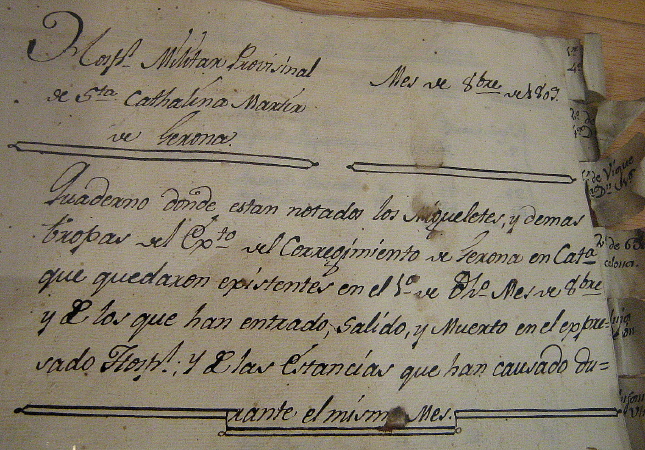 Hospl. Militar Provisinal
de Sta Cathalina Martir
de Gerona.
Mes de 8bre de 1809.
Quaderno donde estan notados los Migueletes, y demas
tropas del Exto del Corregimiento de Gerona en Cata
que quedaron existentes en el 1o de dho Mes de 8bre
y de los que han entrado, salido, y Muerto en el expre-
sado Hospl., y de las Estancias que han causado du=
rante el mismo Mes.